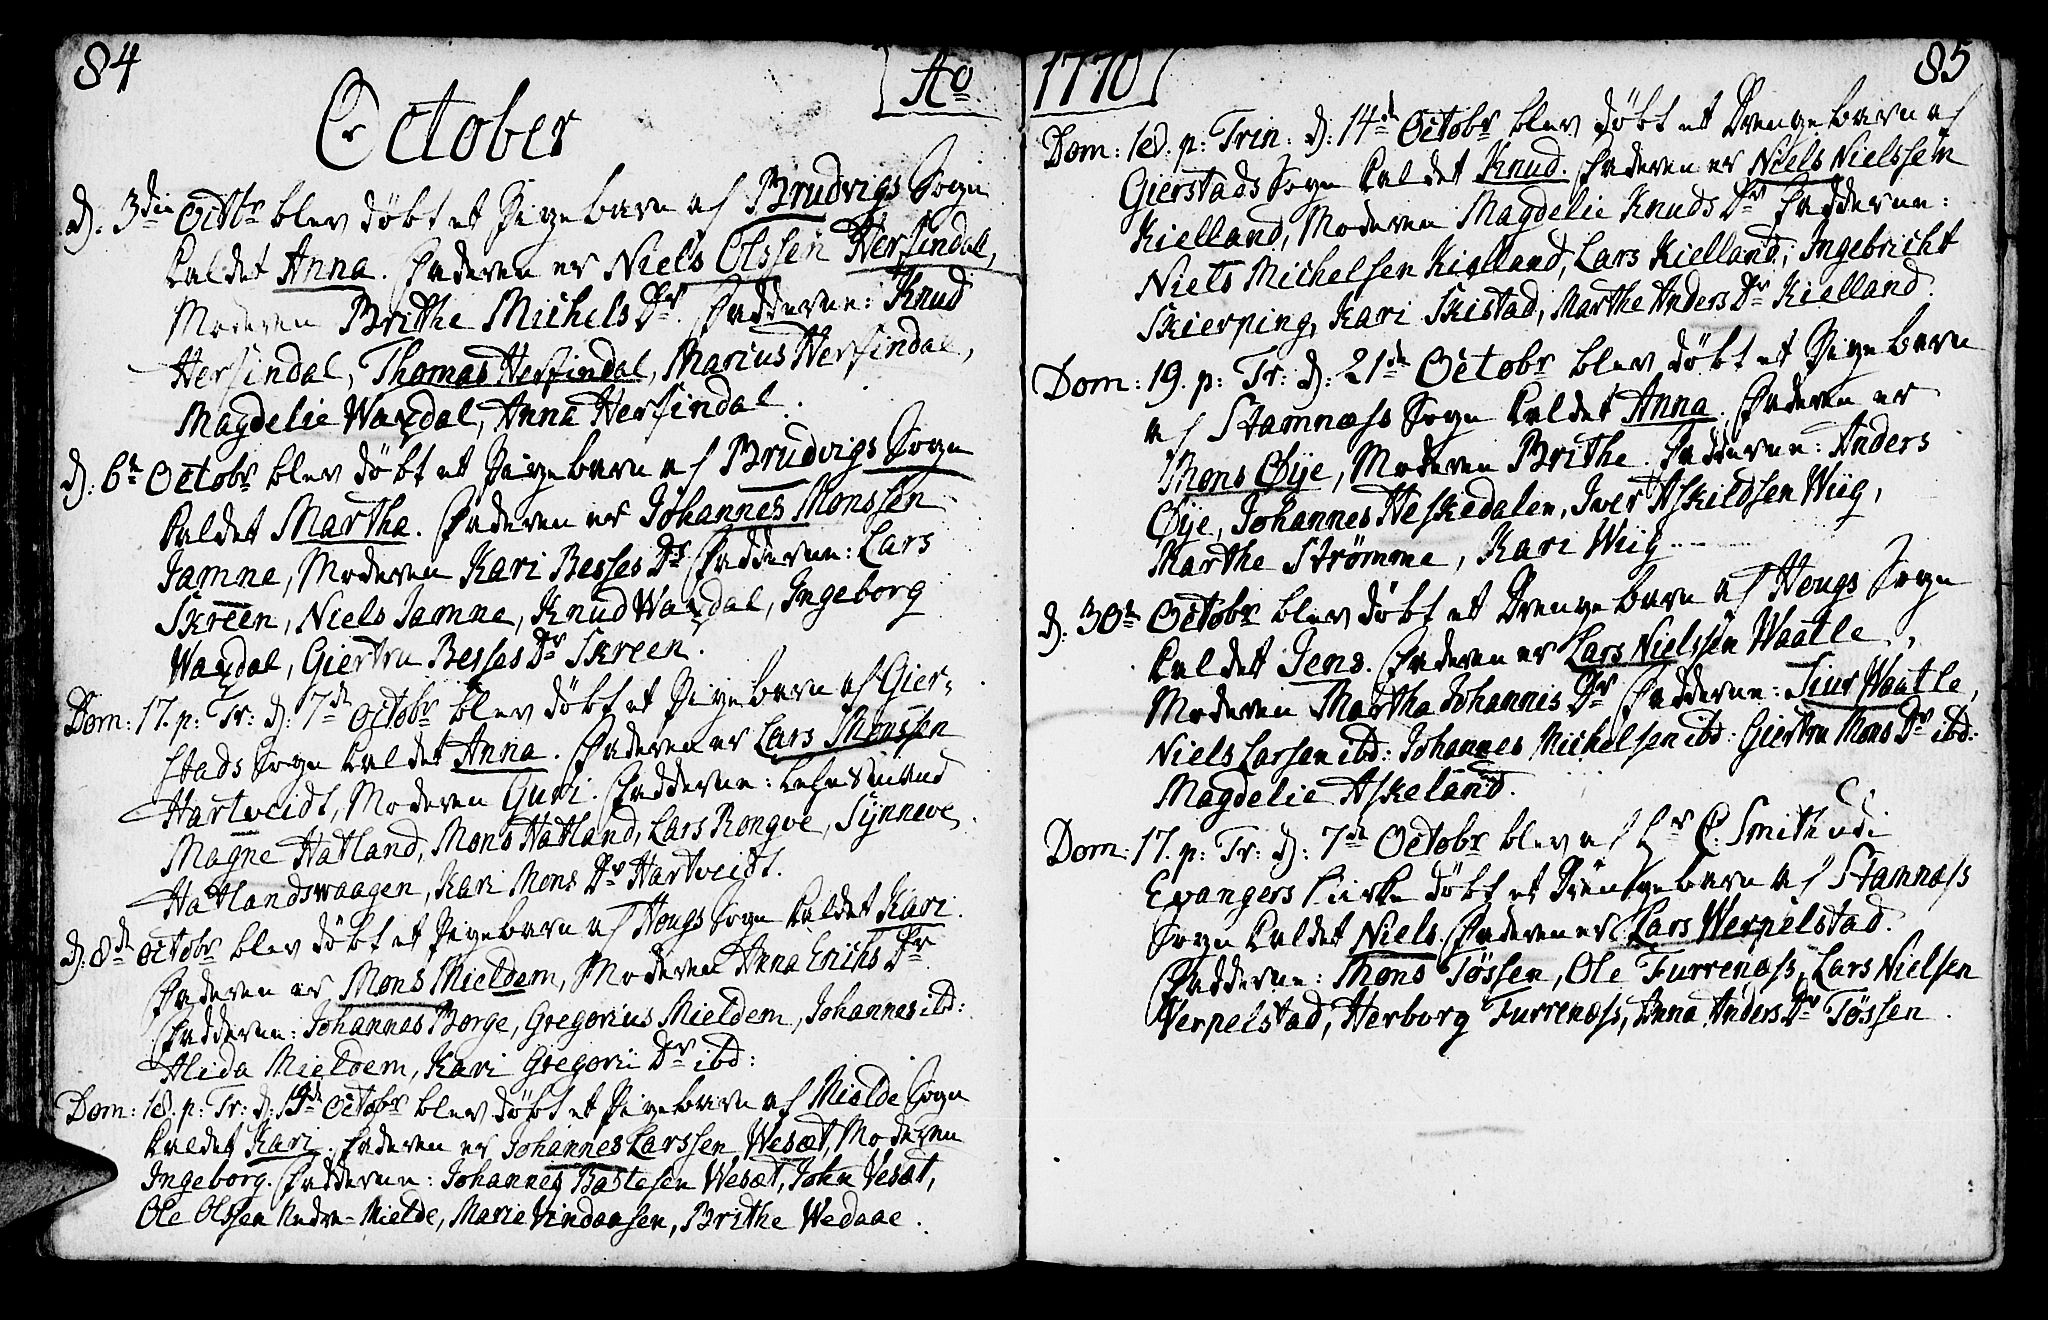 84
Ao
October
d. 3die Octbr blev döbt et Pigebarn af Brudvigs Sogn
kaldet Anna. Faderen er Niels Olssen Hersindal,
Moderen Brithe Michels Dr. Fadderne: Knud
Hersindal, Thomas Hersindal, Marius Hersindal,
Magdelie Waxdal, Anna Hersindal.
d. 6te Octobr blev döbt et Pigebarn af Brudvigs Sogn
kaldet Martha. Faderen er Johannes Monssen
Jamne, Moderen Kari Besses Dr Fadderne: Lars
Skreen, Niels Jamne, Knud Waxdal, Ingeborg
Waxdal, Giertru Besses Dr Skreen.
Dom: 17. p: Tr: d: 7de Octobr blev döbt et Pigebarn af Gier-
stads Sogn kaldet Anna. Faderen er Lars Monssen
Hartveidt, Moderen Guri. Fadderne: Lehnsmand
Magne Hatland, Mons Hatland, Lars Rongve, Synneve
Hatlandswaagen, Kari Mons Dr Hartveidt.
d: 8de Octobr blev döbt et Pigebarn af Hougs Sogn kaldet Kari.
Faderen er Mons Mieldem, Moderen Anna Erichs Dr
Fadderne: Johannes Borge, Gregorius Mieldem, Johannes ibd:
Alida Mieldem, Kari Gregorii Dr ibd:
Dom: 18. p: Tr: d: 14de Octobr blev döbt et Pigebarn af Mielde Sogn
kaldet Kari. Faderen er Johannes Larssen Wesæt, Moderen
Ingeborg. Fadderne: Johannes Bastesen Wesæt, John Vesæt,
Ole Olssen Nedre-Mielde, Marie Vindaasen, Brithe Wedaae.
1770
85
Dom: 18. p: Trin: d: 14de Octobr blev döbt et Drengebarn af
Gierstads Sogn kaldet Knud. Faderen er Niels Nielssen
Kielland, Moderen Magdelie Knuds Dr Fadderne:
Niels Michelsen Kielland, Lars Kielland, Ingebricht
Skierping, Kari Skistad, Marthe Anders Dr Kielland.
Dom: 19. p: Tr: d: 21de Octobr blev döbt et Pigebarn
af Stamnæss Sogn kaldet Anna. Faderen er
Mons Øye, Moderen Brithe. Fadderne: Anders
Øye, Johannes Heskedalen, Iver Askildsen Wiig,
Marthe Strømme, Kari Wiig
d. 30te Octobr blev döbt et Drengebarn af Hougs Sogn
kaldet Jens. Faderen er Lars Nielssen Waatle,
Moderen Martha Johannis Dr Fadderne: Siur Waatle,
Niels Larsen ibd: Johannes Michelsen ibd: Giertru Mons Dr ibd:
Magdelie Askeland.
Dom: 17. p: Tr: d: 7de Octobr blev af Hr C. Smith udi
Evangers Kirke döbt et Drengebarn af Stamnæss
Sogn kaldet Niels. Faderen er Lars Werpelstad.
Fadderne: Mons Tøssen, Ole Furrenæss, Lars Nielsen
Verpelstad, Herborg Furrenæss, Anna Anders Dr Tøssen.